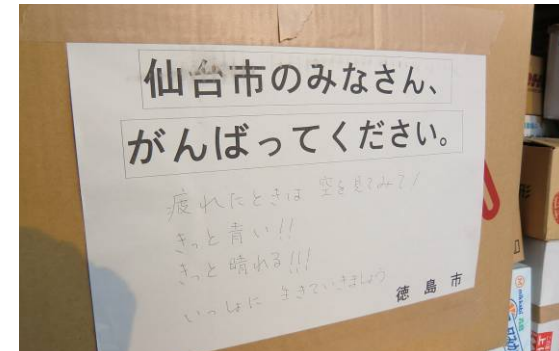 仙台市のみなさん、
がんばってください。
疲れたときは 空を見てみて！
きっと青い!!
きっと晴れる!!!
いっしょに 生きていきましょう
徳島市